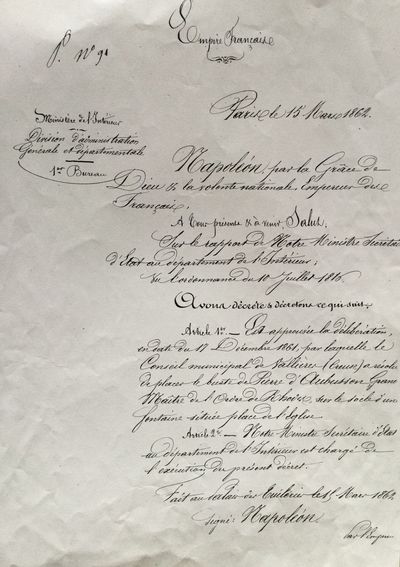 Empire Français
P. N° 91
Paris le 15 Mars 1862.
Ministère de l'Intérieur
Division d'administration
Générale et départementale
1er Bureau
Napoléon, par la Grâce de
Dieu & la volonté nationale, Empereur des
Français,
A tous présents & à venir, Salut,
Sur le rapport de Notre Ministre Secrétaire
d'Etat au département de l'Intérieur;
Vu l'ordonnance du 10 Juillet 1816,
Avons décrété & décrétons ce qui suit.
Article 1er. — Est approuvée la délibération,
en date du 17 Décembre 1861, par laquelle le
Conseil municipal de Vallière (Creuse) a résolu
de placer le buste de Pierre d'Aubusson Grand
Maître de l'Ordre de Rhodes, sur le socle d'une
fontaine située place de l'Eglise
Article 2e. — Notre Ministre Secrétaire d'Etat
au département de l'Intérieur est chargé de
l'exécution du présent décret.
Fait au Palais des Tuileries le 15 Mars 1862
signé: Napoléon
Par l'Empereur